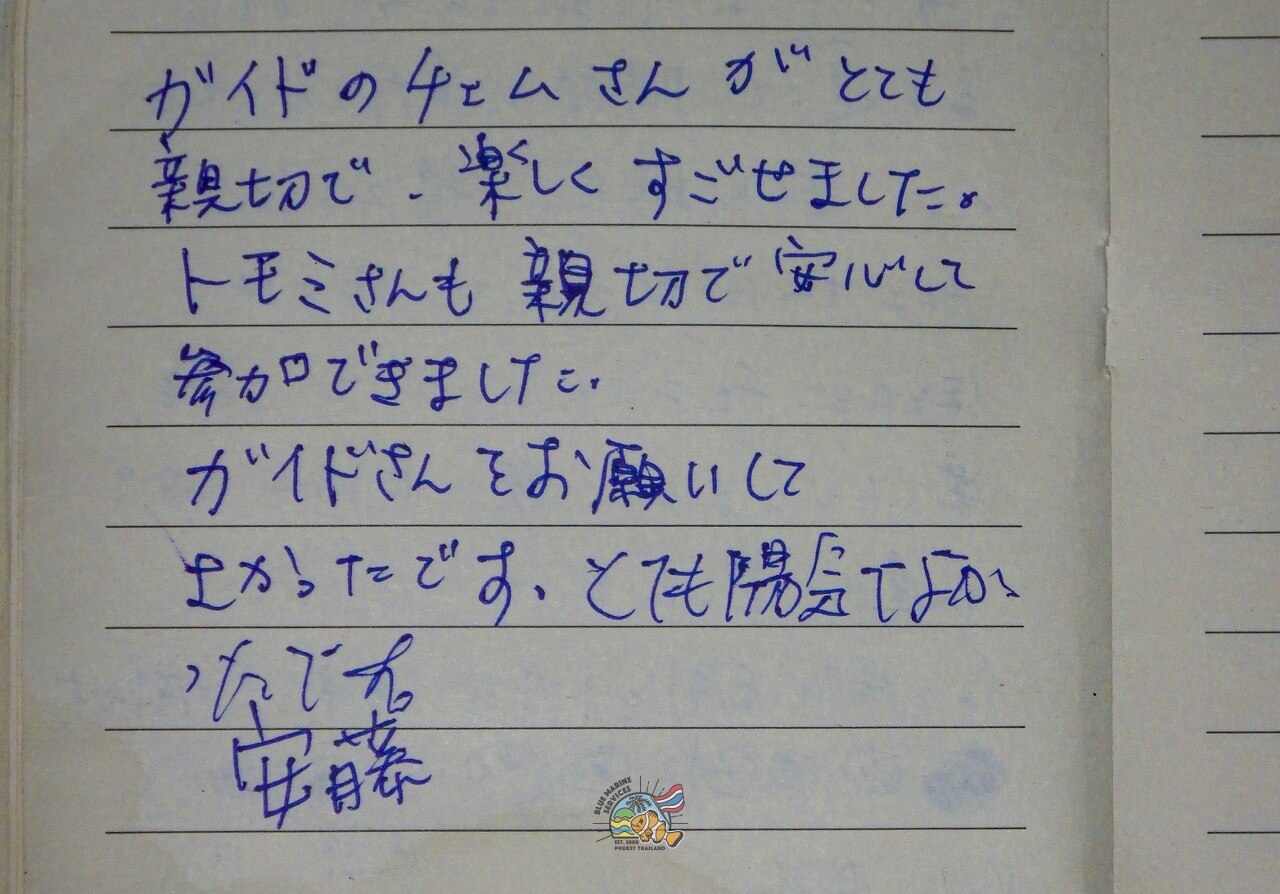 ガイドのチェムさんがとても
親切で、楽しくすごせました。
トモミさんも親切で安心して
参加できました。
ガイドさんをお願いして
よかったです、とても陽気でよか
ったです。
安藤
BLUE MARINE SERVICES
EST. 2000
PHUKET THAILAND